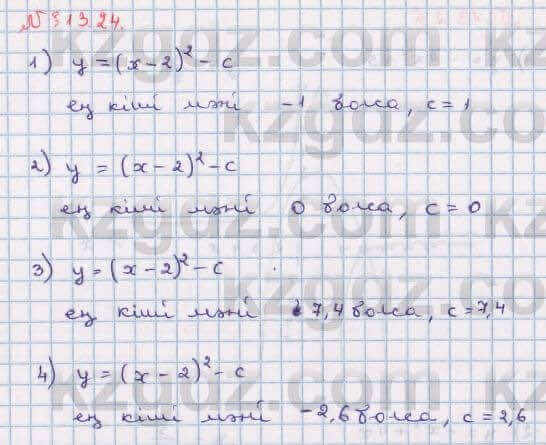 № 313.24.
1) y = (x – 2)² – c
ең кіші мәні –1 болса, c = 1
2) y = (x – 2)² – c
ең кіші мәні 0 болса, c = 0
3) y = (x – 2)² – c
ең кіші мәні 7,4 болса, c = 7,4
4) y = (x – 2)² – c
ең кіші мәні –2,6 болса, c = 2,6
kzgdz.com